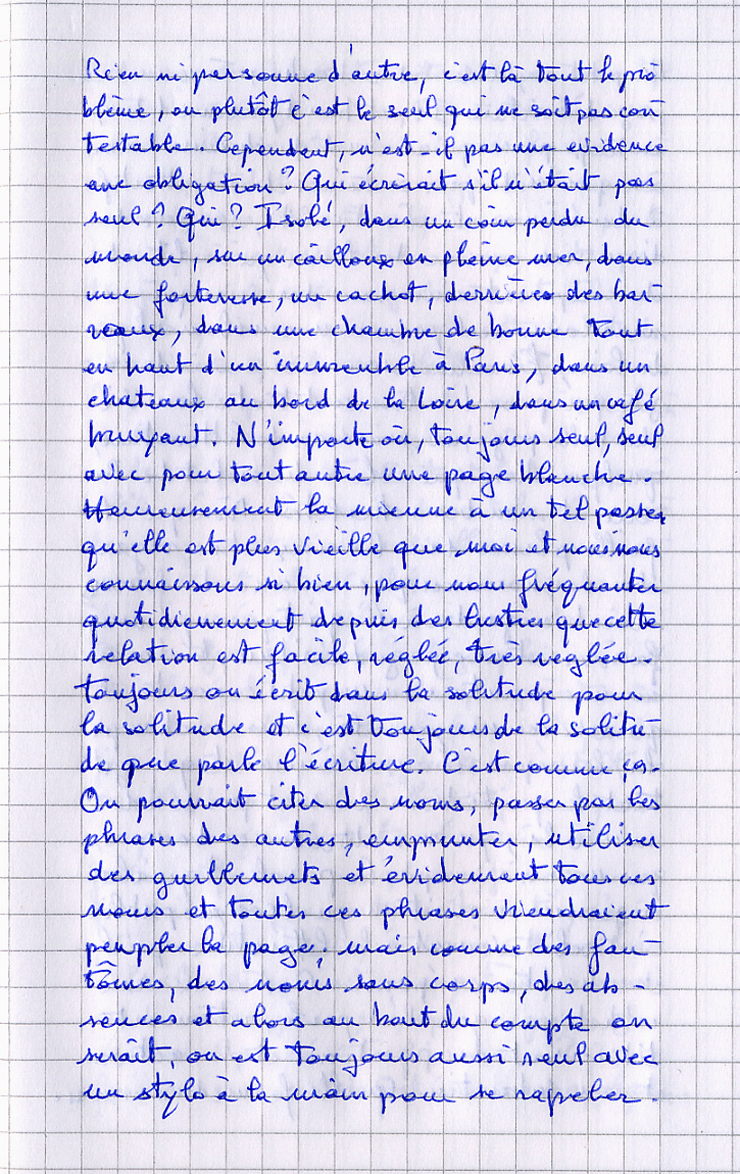 Rien ni personne d'autre, c'est là tout le pro
blème, ou plutôt c'est le seul qui ne soit pas con
testable. Cependent, n'est-il pas une evidence
une obligation ? Qui écrirait s'il n'était pas
seul ? Qui ? Isolé, dans un coin perdu du
monde, sur un cailloux en pleine mer, dans
une forteresse, un cachot, derrières des bar-
reaux, dans une chambre de bonne tout
en haut d'un immeuble à Paris, dans un
chateaux au bord de la Loire, dans un café
bruyant. N'importe où, toujours seul, seul
avec pour tout autre une page blanche.
Heureusement la mienne à un tel passé
qu'elle est plus vieille que moi et nous nous
connaissons si bien, pour nous fréquanter
quotidienement depuis des lustres que cette
relation est facile, réglée, très reglée.
Toujours on écrit dans la solitude pour
la solitude et c'est toujours de la solitu-
de que parle l'écriture. C'est comme ça.
On pourrait citer des noms, passer par les
phrases des autres, emprunter, utiliser
des guillemets et évidement tous ces
noms et toutes ces phrases viendraient
peupler la page, mais comme des fan-
tômes, des noms sans corps, des ab-
sences et alors au bout du compte on
serait, on est toujours aussi seul avec
un stylo à la main pour se rappeler.